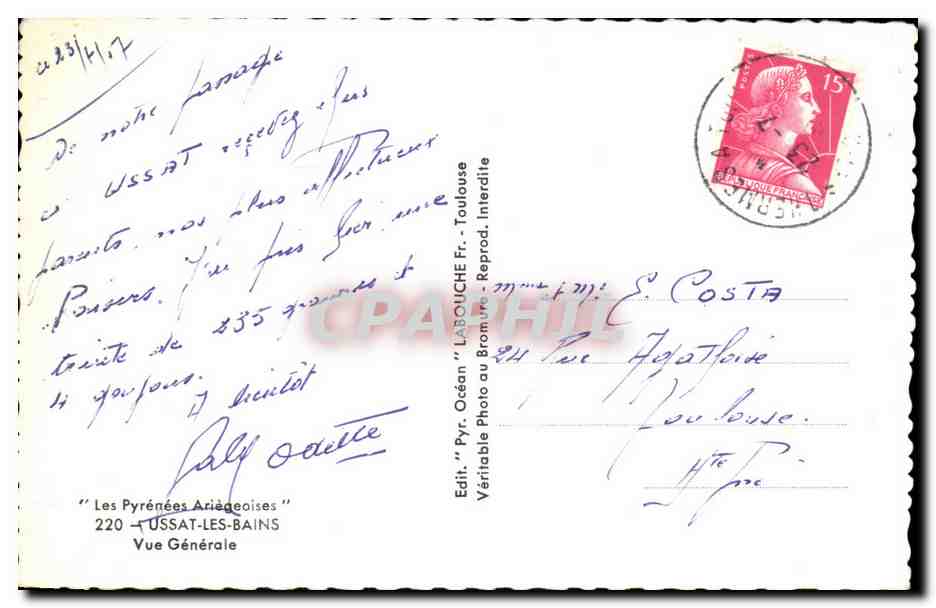 ce 23/7/57
De notre passage
à USSAT recevez chers
parents, nos plus affectueux
Baisers. J'ai pris hier une
truite de 235 grammes et
4 goujons.
A bientôt
Odette
" Les Pyrénées Ariégeoises "
220 - USSAT-LES-BAINS
Vue Générale
Edit. " Pyr. Océan " LABOUCHE Fr. - Toulouse
Véritable Photo au Bromure - Reprod. Interdite
POSTES
15
REPUBLIQUE FRANÇAISE
E. COSTA
24 Rue Agathoise
Toulouse.
Hte
CPAPHIL